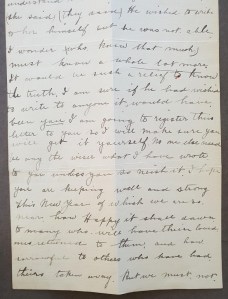 she said (they said) He wished to write
to her himself but he was not able,
I wonder who knew that much
must know a whole lot more,
It would be such a relief to know
the truth, I am sure if he had wished
to write to anyone it would have
been you. I am going to register this
letter to you so I will make sure you
will get it yourself. No one else need
ever the wiser what I have wrote
to you unless you so wish it. I hope
you are keeping well and strong
This New Year of which we are so
near how Happy it shall dawn
to many who will have their loved
ones returned to them, and how
sorrowful to others who have had
theirs taken away. But we must not